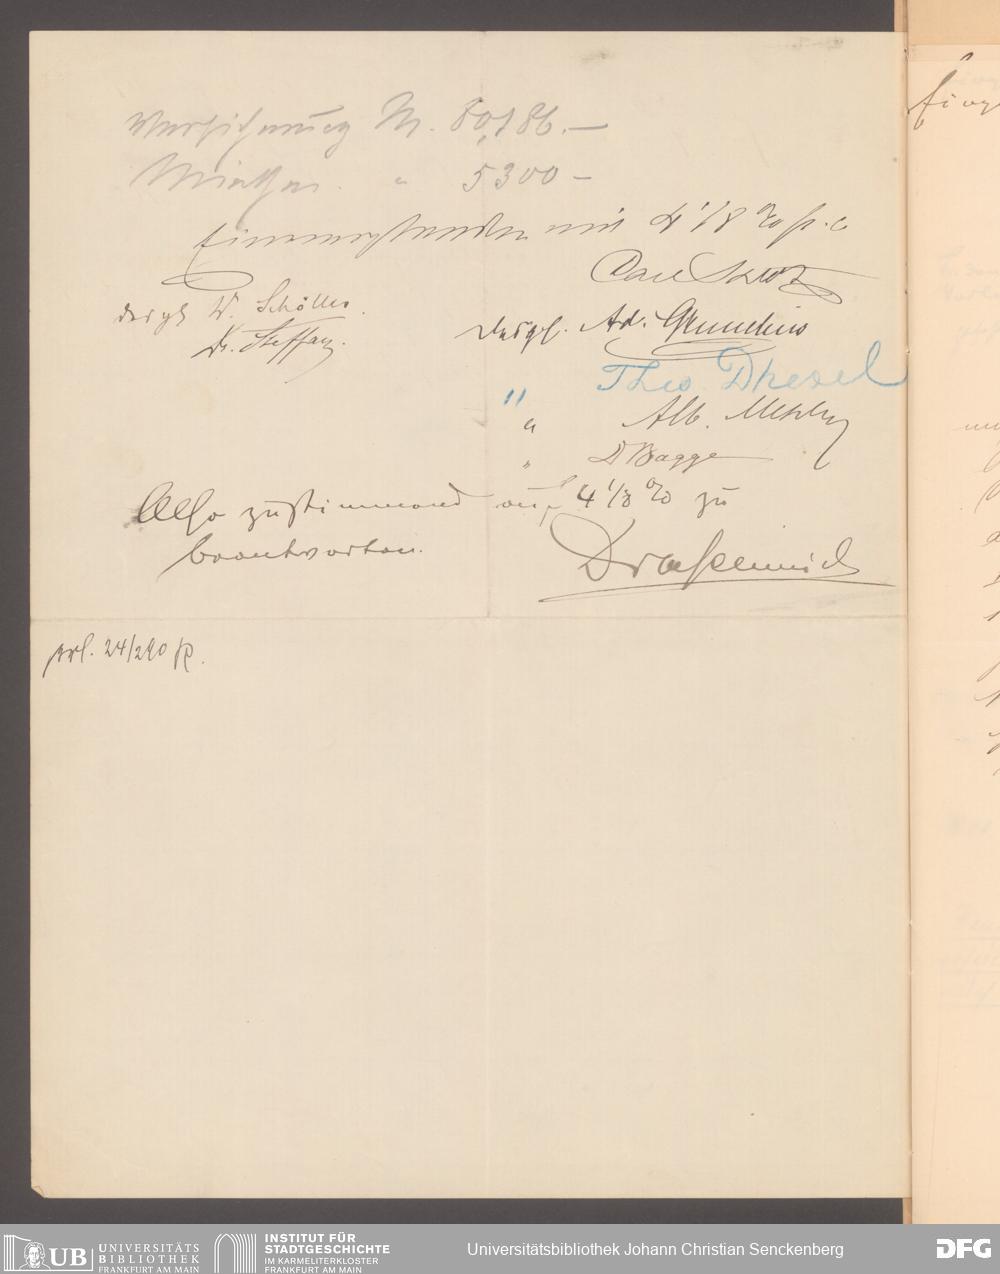 Versicherung M. 80,186.—
Miethen „ 5300 —
Einverstanden mit 4 1/8 % p. a
Carl
desgl W. Schöller.
Dr. Steffan.
desgl. Ad.
" Theo Drexel
" Alb. Metzler
" D Bagge
Also zustimmend auf 4 1/8 % zu
beantworten.
erl. 24/2 90
UB UNIVERSITÄTS
BIBLIOTHEK
FRANKFURT AM MAIN
INSTITUT FÜR
STADTGESCHICHTE
IM KARMELITERKLOSTER
FRANKFURT AM MAIN
Universitätsbibliothek Johann Christian Senckenberg
DFG